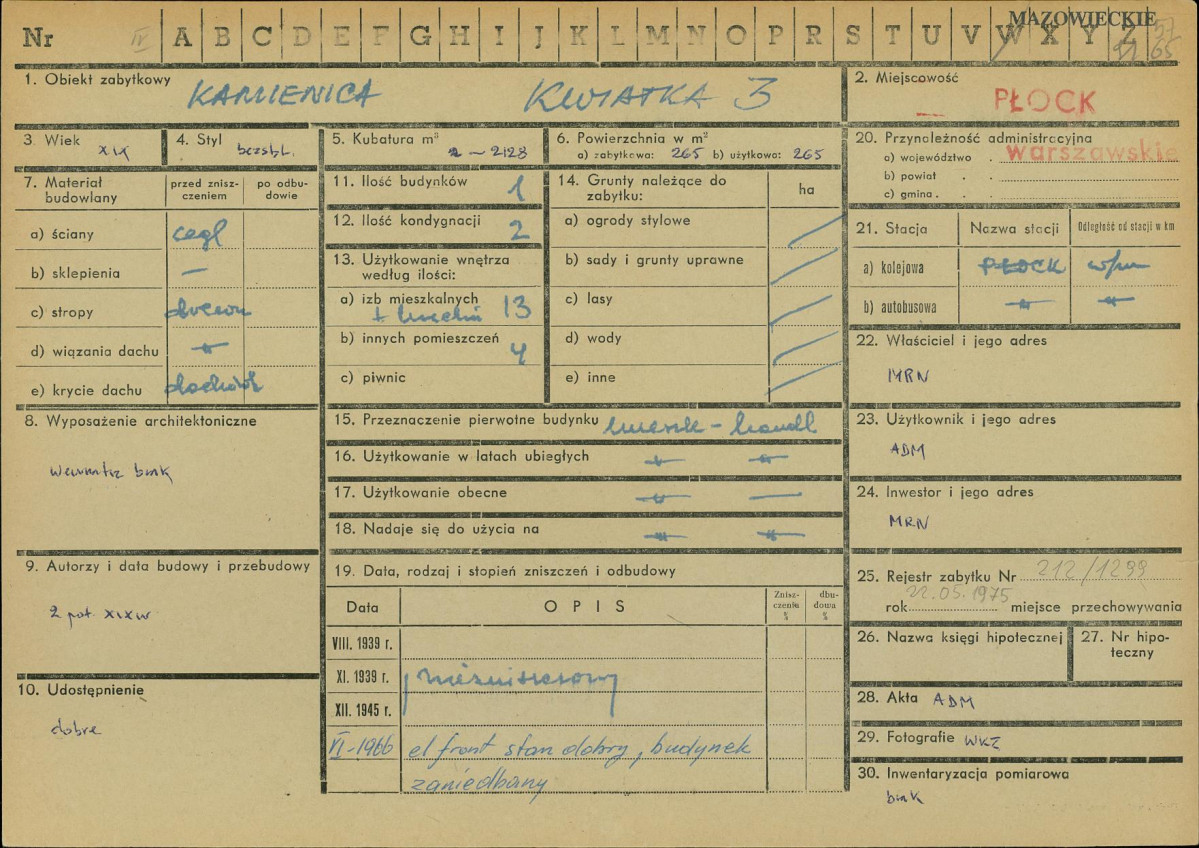 MAZOWIECKIE
Nr IV A B C D E F G H I J K L M N O P R S T U V W X Y Z
1. Obiekt zabytkowy KAMIENICA KWIATKA 3
2. Miejscowość
PŁOCK
3. Wiek XIX
4. Styl bezstyl.
5. Kubatura m³ 2128
6. Powierzchnia w m²
a) zabytkowa: 265 b) użytkowa: 265
7. Materiał budowlany
przed znisz-
czeniem
po odbu-
dowie
a) ściany cegl
b) sklepienia —
c) stropy drewn
d) wiązania dachu -"-
e) krycie dachu dachówk
8. Wyposażenie architektoniczne
wewnątrz brak
9. Autorzy i data budowy i przebudowy
2 poł. XIXw
10. Udostępnienie
dobre
11. Ilość budynków 1
12. Ilość kondygnacji 2
13. Użytkowanie wnętrza
według ilości:
a) izb mieszkalnych 13
+ kuchni
b) innych pomieszczeń 4
c) piwnic
14. Grunty należące do
zabytku:
ha
a) ogrody stylowe
b) sady i grunty uprawne
c) lasy
d) wody
e) inne
15. Przeznaczenie pierwotne budynku mieszk - handl
16. Użytkowanie w latach ubiegłych -"- -"-
17. Użytkowanie obecne -"- —
18. Nadaje się do użycia na -"- -"-
19. Data, rodzaj i stopień zniszczeń i odbudowy
Data
OPIS
Znisz-
czenia
%
dbu-
dowa
%
VIII. 1939 r.
XI. 1939 r. niezniszczony
XII. 1945 r.
VI-1966 el front stan dobry, budynek
zaniedbany
20. Przynależność administracyjna
a) województwo warszawskie
b) powiat
c) gmina
21. Stacja
Nazwa stacji
Odległość od stacji w km
a) kolejowa PŁOCK w/m
b) autobusowa -"- -"-
22. Właściciel i jego adres
MRN
23. Użytkownik i jego adres
ADM
24. Inwestor i jego adres
MRN
25. Rejestr zabytku Nr 212/1299
rok 22.05.1975 miejsce przechowywania
26. Nazwa księgi hipotecznej
27. Nr hipo-
teczny
28. Akta ADM
29. Fotografie WKZ
30. Inwentaryzacja pomiarowa
brak